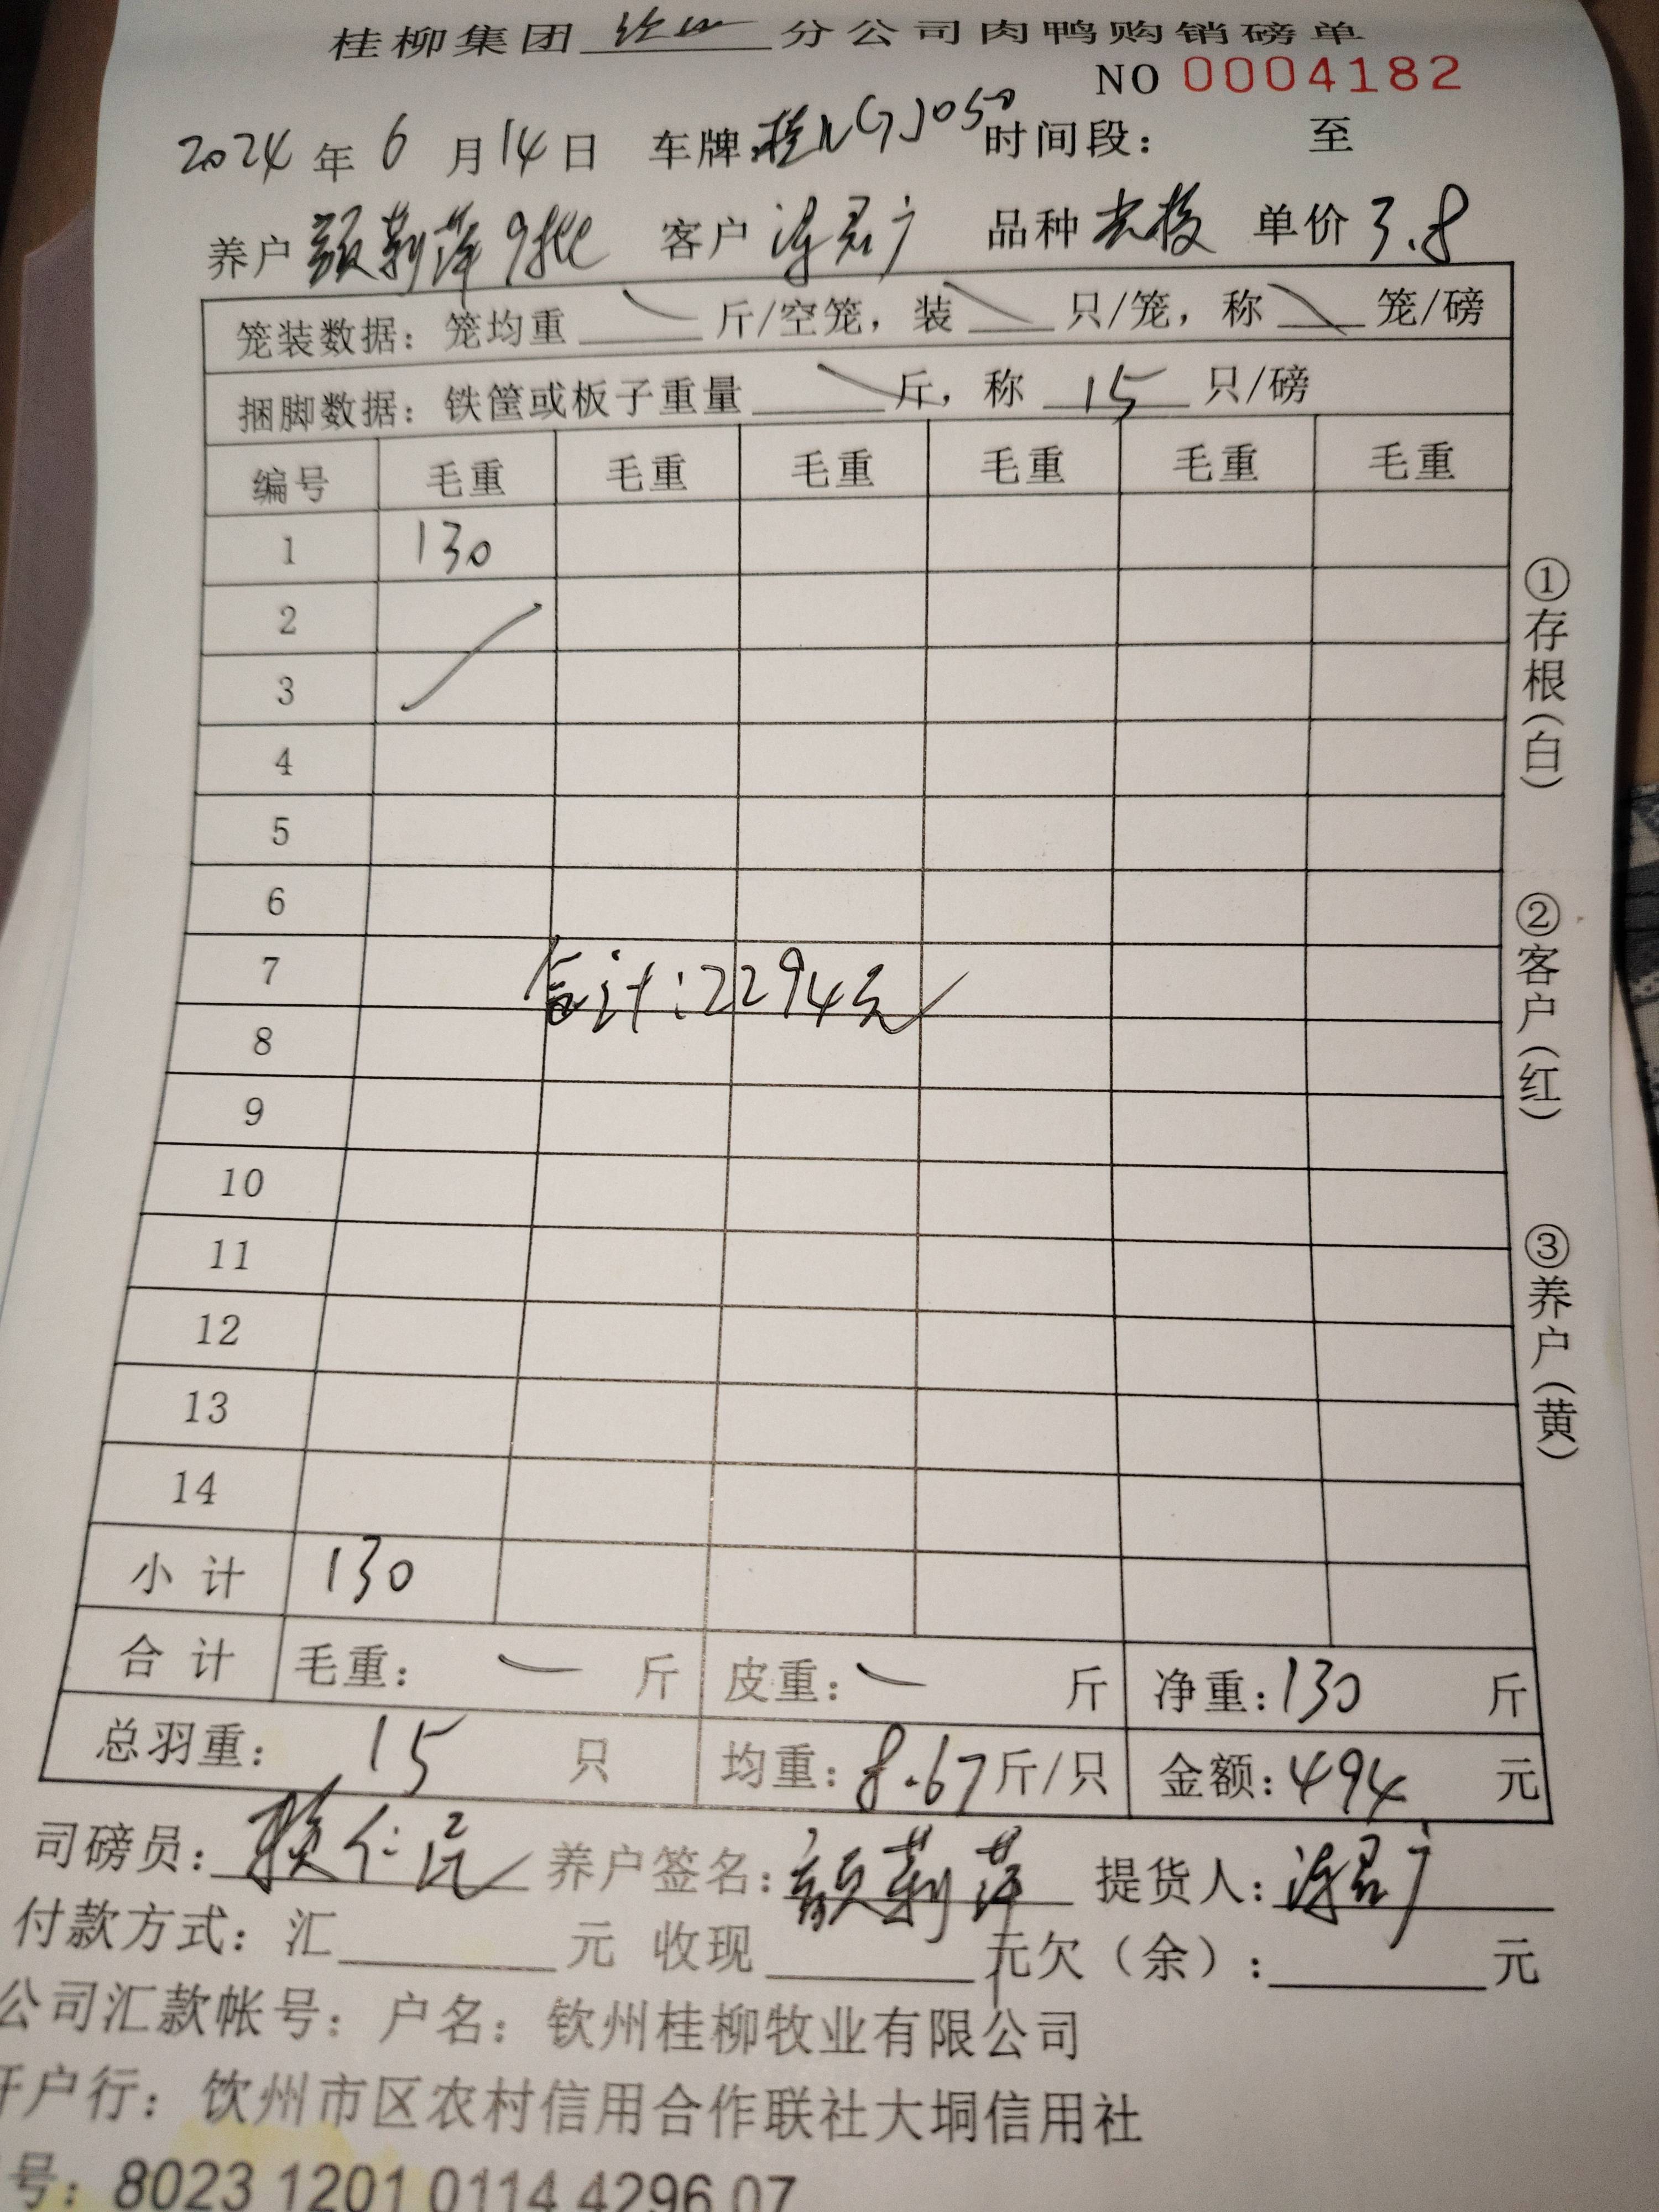 桂柳集团 分公司肉鸭购销磅单
NO 0004182
2024年6月14日 车牌:桂NGJ050 时间段: 至
养户 颜莉萍9批 客户 品种 单价3.8
笼装数据:笼均重 斤/空笼,装 只/笼,称 笼/磅
捆脚数据:铁筐或板子重量 斤,称 15 只/磅
编号 毛重 毛重 毛重 毛重 毛重 毛重
1 130
2
3
4
5
6
7
合计:2294元
8
9
10
11
12
13
14
小计 130
合计 毛重: 斤 皮重: 斤 净重:130 斤
总羽重: 15 只 均重:8.67斤/只 金额:494 元
司磅员: 养户签名:颜莉萍 提货人:
付款方式:汇 元 收现 元欠(余): 元
公司汇款帐号:户名:钦州桂柳牧业有限公司
开户行:饮州市区农村信用合作联社大垌信用社
号:8023 1201 0114 4296 07
①存根(白)
②客户(红)
③养户(黄)